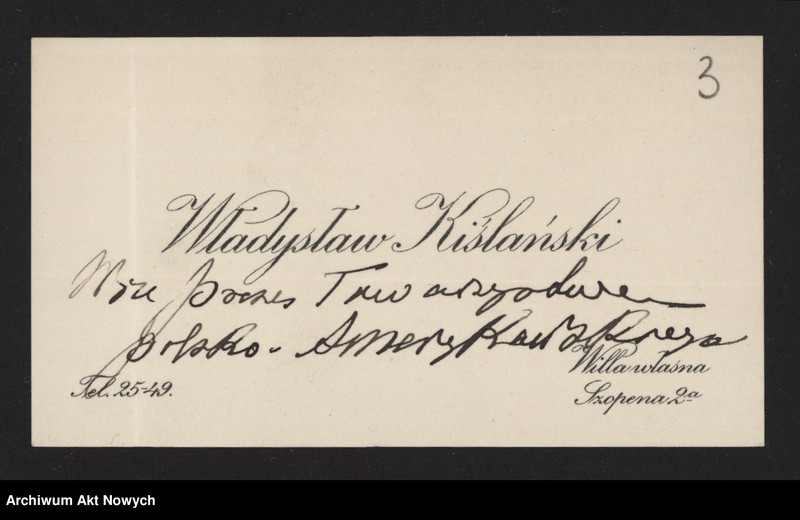 3
Władysław Kiślański
Wice prezes Towarzystwa
polsko-Amerykańskiego
Willa własna
Tel. 25-49.
Szopena 2a
Archiwum Akt Nowych